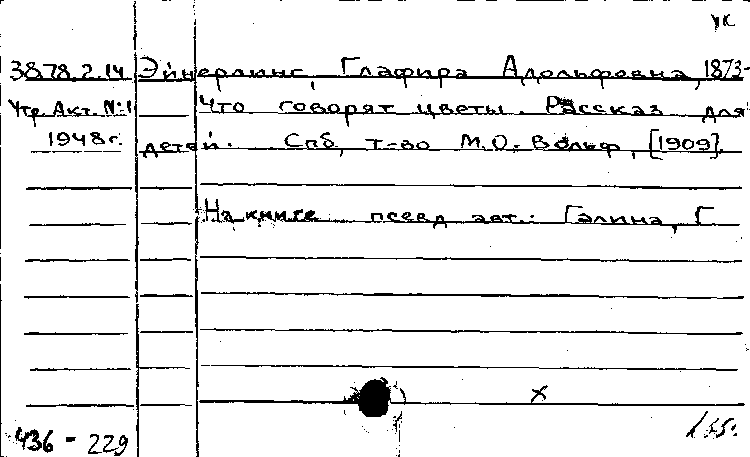 УК
3878.2.14 Эйнерлинг, Глафира Адольфовна, 1873-
Утр. Акт. №1 Что говорят цветы. Рассказ для
1948 г. детей. Спб, т-во М.О. Вольф, [1909].
На книге псевд авт.: Галина, Г
х
436 - 229